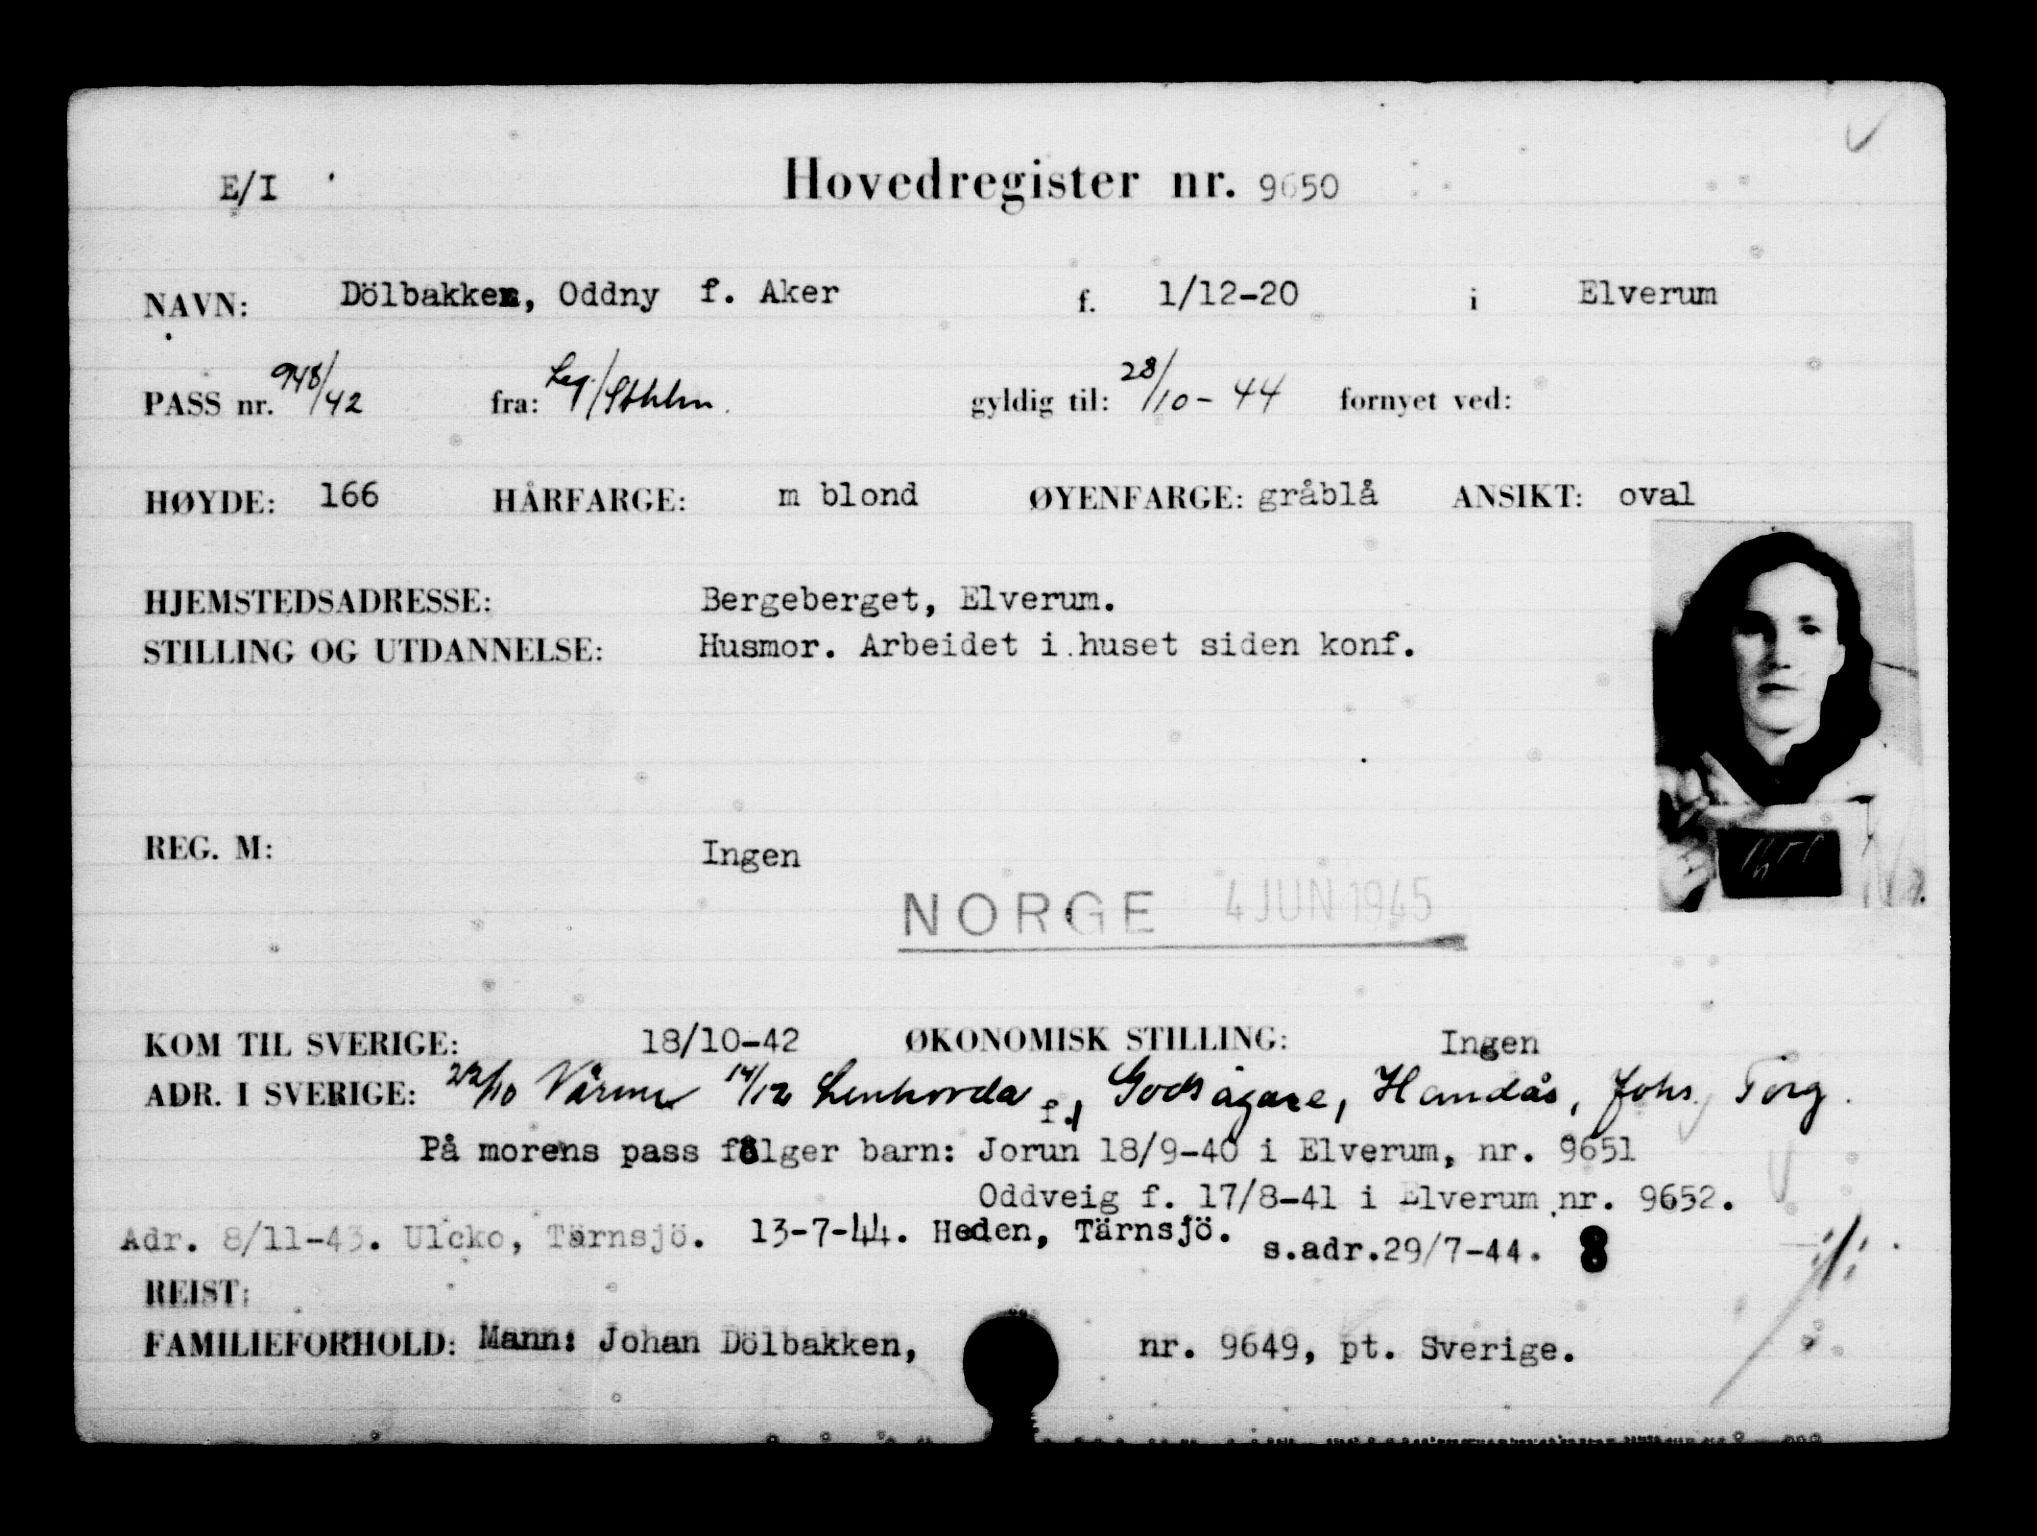 E/I Hovedregister nr. 9650
NAVN: Dölbakken, Oddny f. Aker f. 1/12-20 i Elverum
PASS nr. 948/42 fra: Leg/Sthlm. gyldig til: 28/10-44 fornyet ved:
HØYDE: 166 HÅRFARGE: m blond ØYENFARGE: gråblå ANSIKT: oval
HJEMSTEDSADRESSE: Bergeberget, Elverum.
STILLING OG UTDANNELSE: Husmor. Arbeidet i huset siden konf.
REG. M: Ingen
NORGE 4 JUN 1945
KOM TIL SVERIGE: 18/10-42 ØKONOMISK STILLING: Ingen
ADR. I SVERIGE: 22/10 14/12 Lenhovda, Godsägare, Handås, Johs. Torg.
f.
På morens pass følger barn: Jorun 18/9-40 i Elverum, nr. 9651
Oddveig f. 17/8-41 i Elverum nr. 9652.
Adr. 8/11-43. Ulcko, Tärnsjö. 13-7-44. Heden, Tärnsjö. s.adr.29/7-44. 8
REIST:
FAMILIEFORHOLD: Mann: Johan Dölbakken, nr. 9649, pt. Sverige.